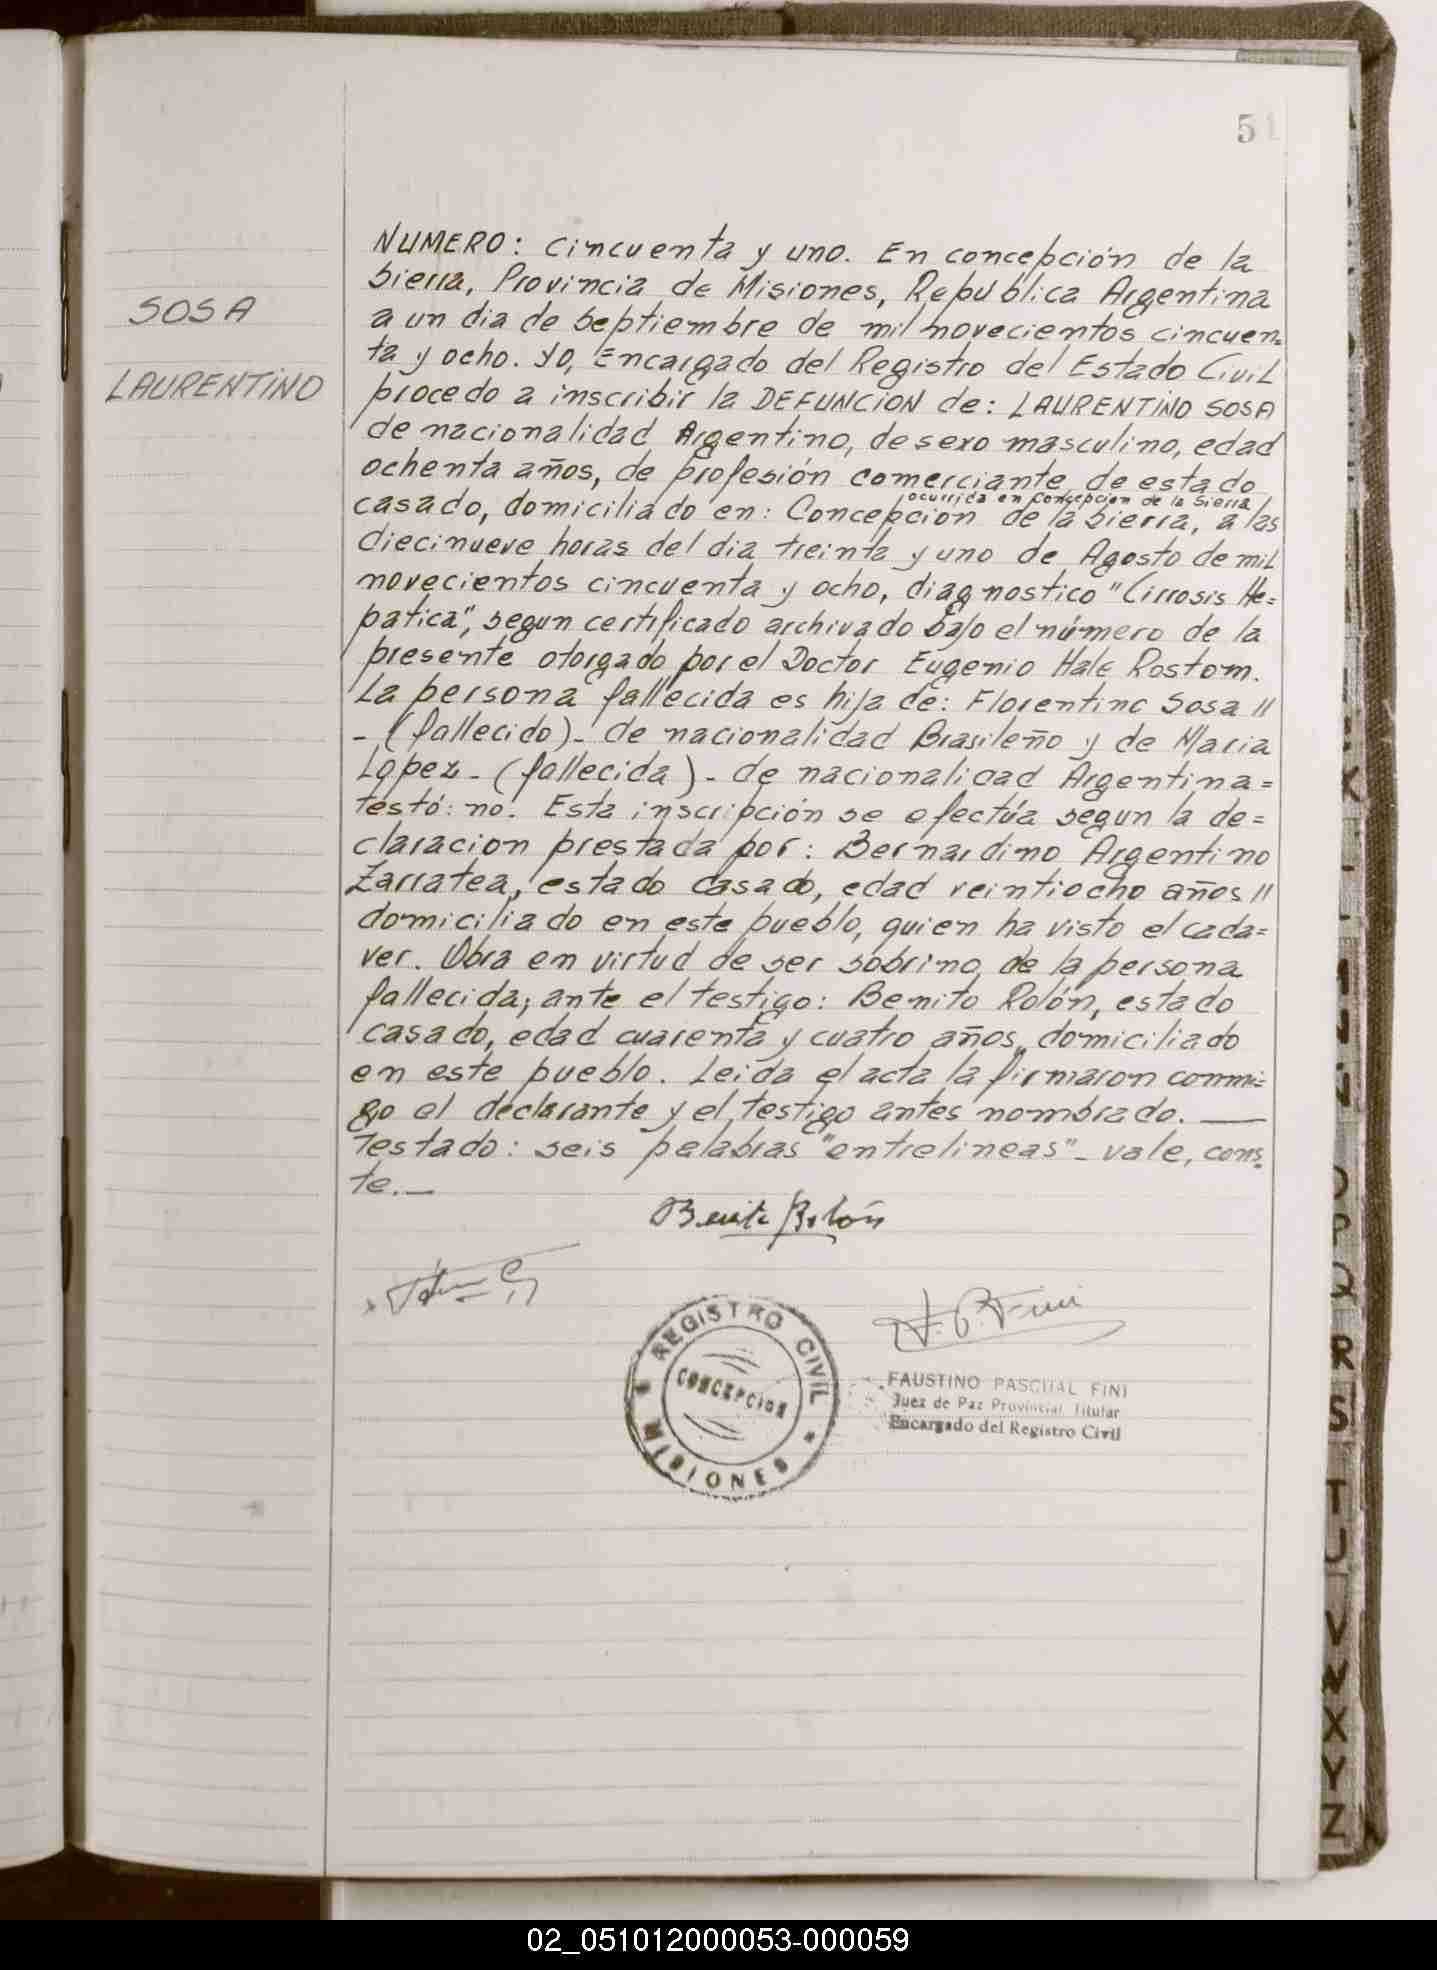 51
NUMERO: Cincuenta y uno. En concepción de la
Sierra, Provincia de Misiones, Republica Argentina
a un dia de Septiembre de mil novecientos cincuen=
ta y ocho. Yo, Encargado del Registro del Estado Civil
procedo a inscribir la DEFUNCION de: LAURENTINO SOSA
de nacionalidad Argentino, de sexo masculino, edad
ochenta años, de profesión comerciante, de estado
ocurrida en Concepcion de la Sierra
casado, domiciliado en: Concepción de la Sierra, a las
diecinueve horas del dia treinta y uno de Agosto de mil
novecientos cincuenta y ocho, diagnostico "Cirrosis He=
patica", segun certificado archivado bajo el número de la
presente otorgado por el Doctor Eugenio Hale Rostom.
La persona fallecida es hija de: Florentino Sosa //
- (fallecido)- de nacionalidad Brasileño y de Maria
Lopez - (fallecida) - de nacionalidad Argentina =
testó: no. Esta inscripción se efectúa segun la de=
claracion prestada por: Bernardino Argentino
Zarratea, estado casado, edad veintiocho años //
domiciliado en este pueblo, quien ha visto el cada=
ver. Obra em virtud de ser sobrino de la persona
fallecida; ante el testigo: Benito Rolón, estado
casado, edad cuarenta y cuatro años, domiciliado
en este pueblo. Leida el acta la firmaron conmi=
go el declarante y el testigo antes nombrado. —
Testado: seis palabras "entrelineas" - vale, cons=
te. —
SOSA
LAURENTINO
Benito Rolón
F. P. Fini
REGISTRO CIVIL
CONCEPCION
MISIONES
FAUSTINO PASCUAL FINI
Juez de Paz Provincial Titular
Encargado del Registro Civil
O
P
Q
R
S
T
U
V
W
X
Y
Z
02_051012000053-000059